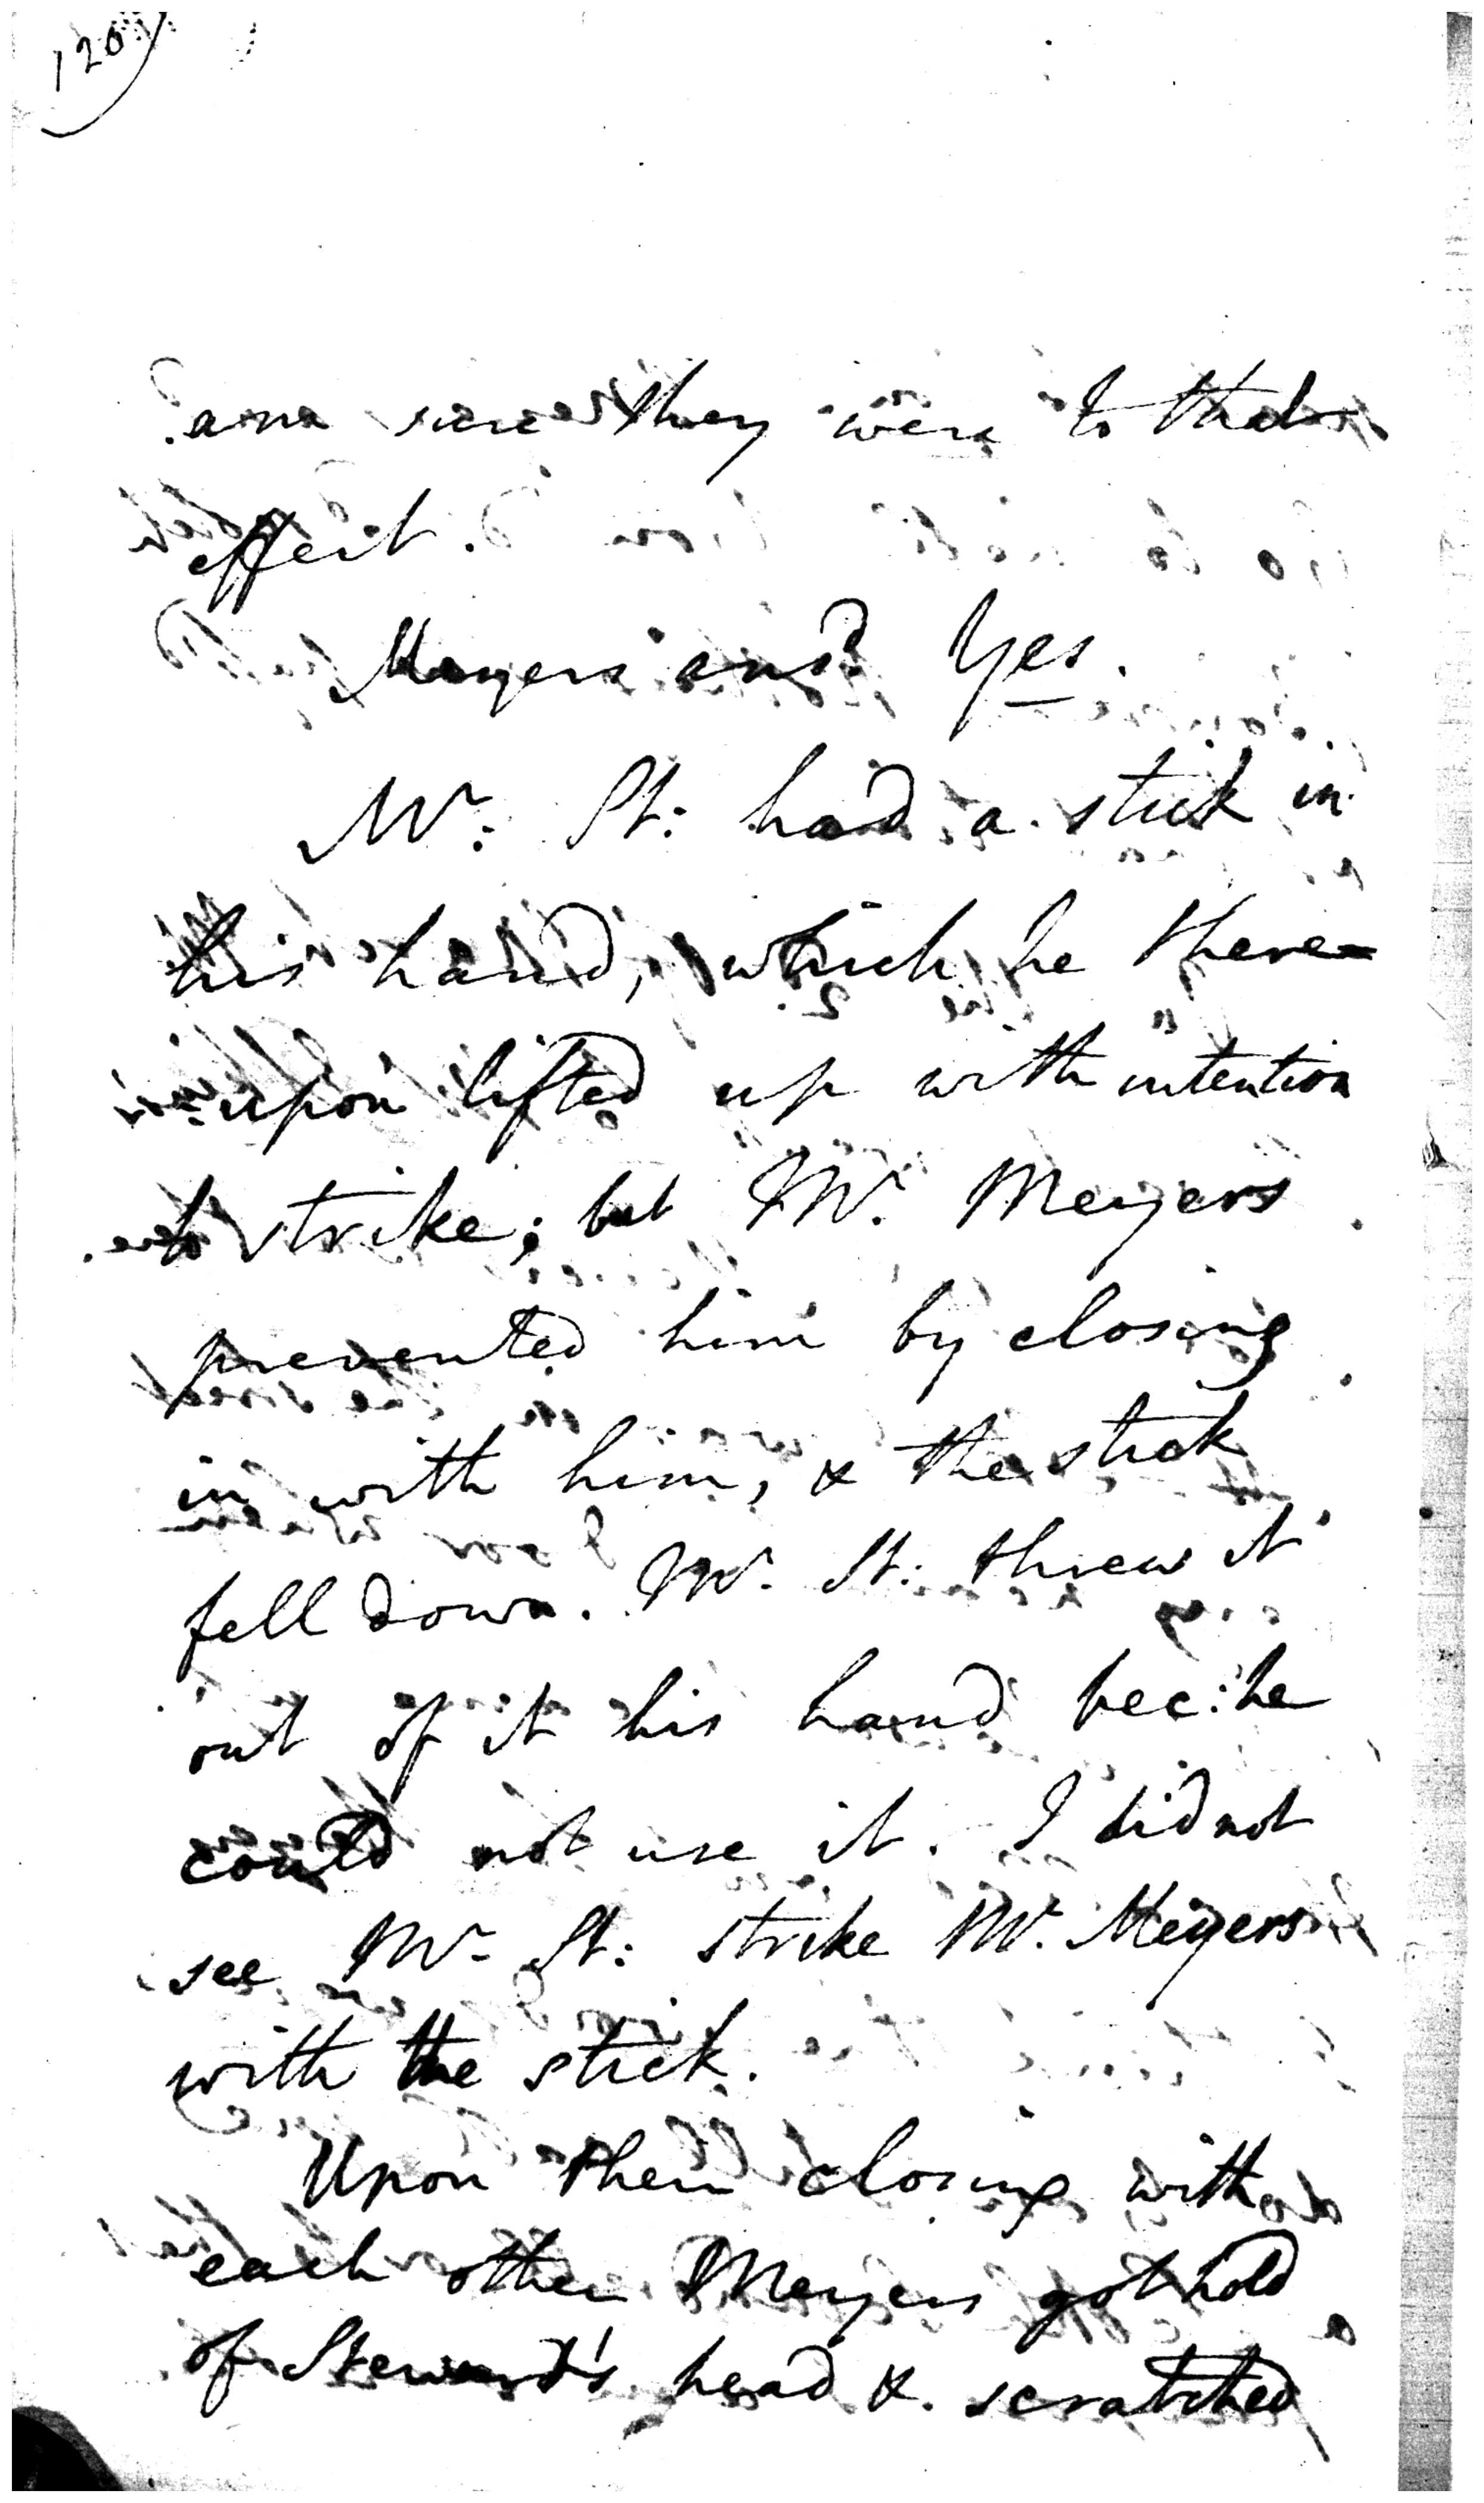 126)
am sure they were to that
effect.
Meyers ansd. Yes.
Mr. St: had a stick in
his hand, which he there=
=upon lifted up with intention
to strike; but Mr. Meyers
prevented him by closing
in with him, & the stick
fell down. Mr. St. threw it
out of it his hand bec: he
could not use it. I did not
see Mr. St: strike Mr. Meyers
with the stick.
Upon their closing with
each other Meyers got hold
of Steward's head & scratched